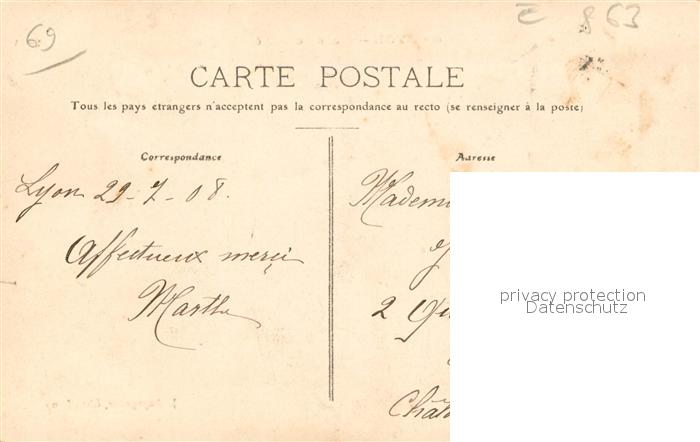 69
863
CARTE POSTALE
Tous les pays etrangers n'acceptent pas la correspondance au recto (se renseigner à la poste)
Correspondance
Adresse
Lyon 29-7-08.
Affectueux merci
Marthe
Madem
2 Qu
Chât
privacy protection
Datenschutz